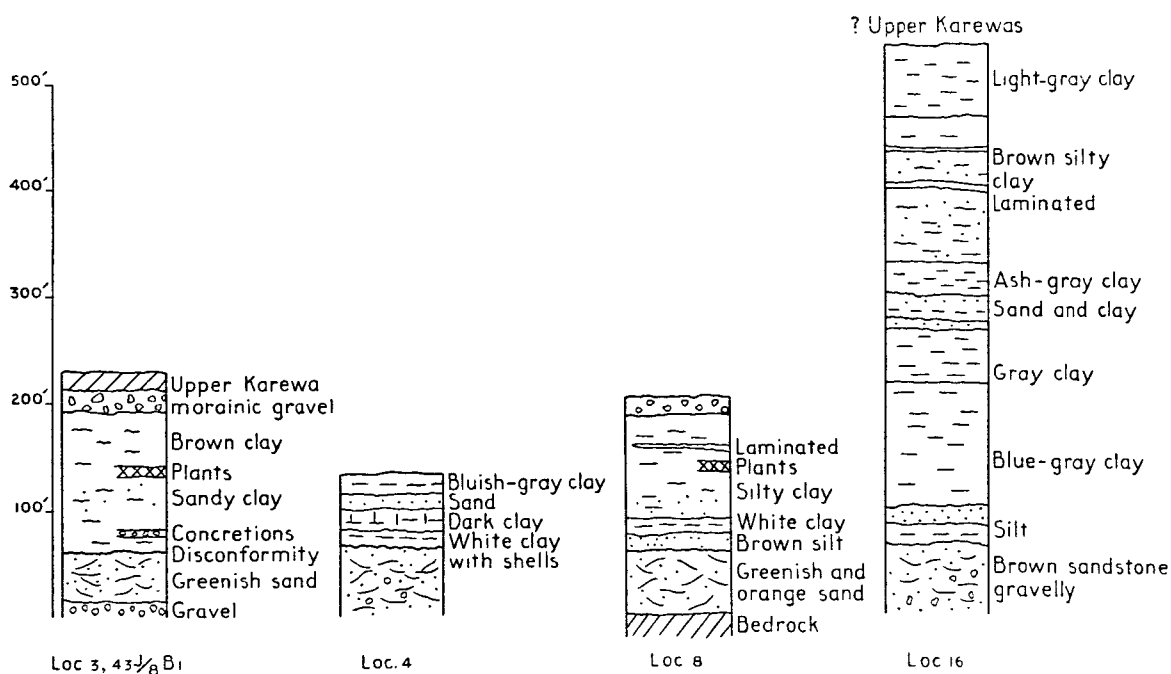 ? Upper Karewas
500'
400'
300'
200'
100'
Upper Karewa
morainic gravel
Brown clay
Plants
Sandy clay
Concretions
Disconformity
Greenish sand
Gravel
Loc 3, 43 J/8 B1
Bluish-gray clay
Sand
Dark clay
White clay
with shells
Loc. 4
Laminated
Plants
Silty clay
White clay
Brown silt
Greenish and
orange sand
Bedrock
Loc 8
Light-gray clay
Brown silty
clay
Laminated
Ash-gray clay
Sand and clay
Gray clay
Blue-gray clay
Silt
Brown sandstone
gravelly
Loc 16